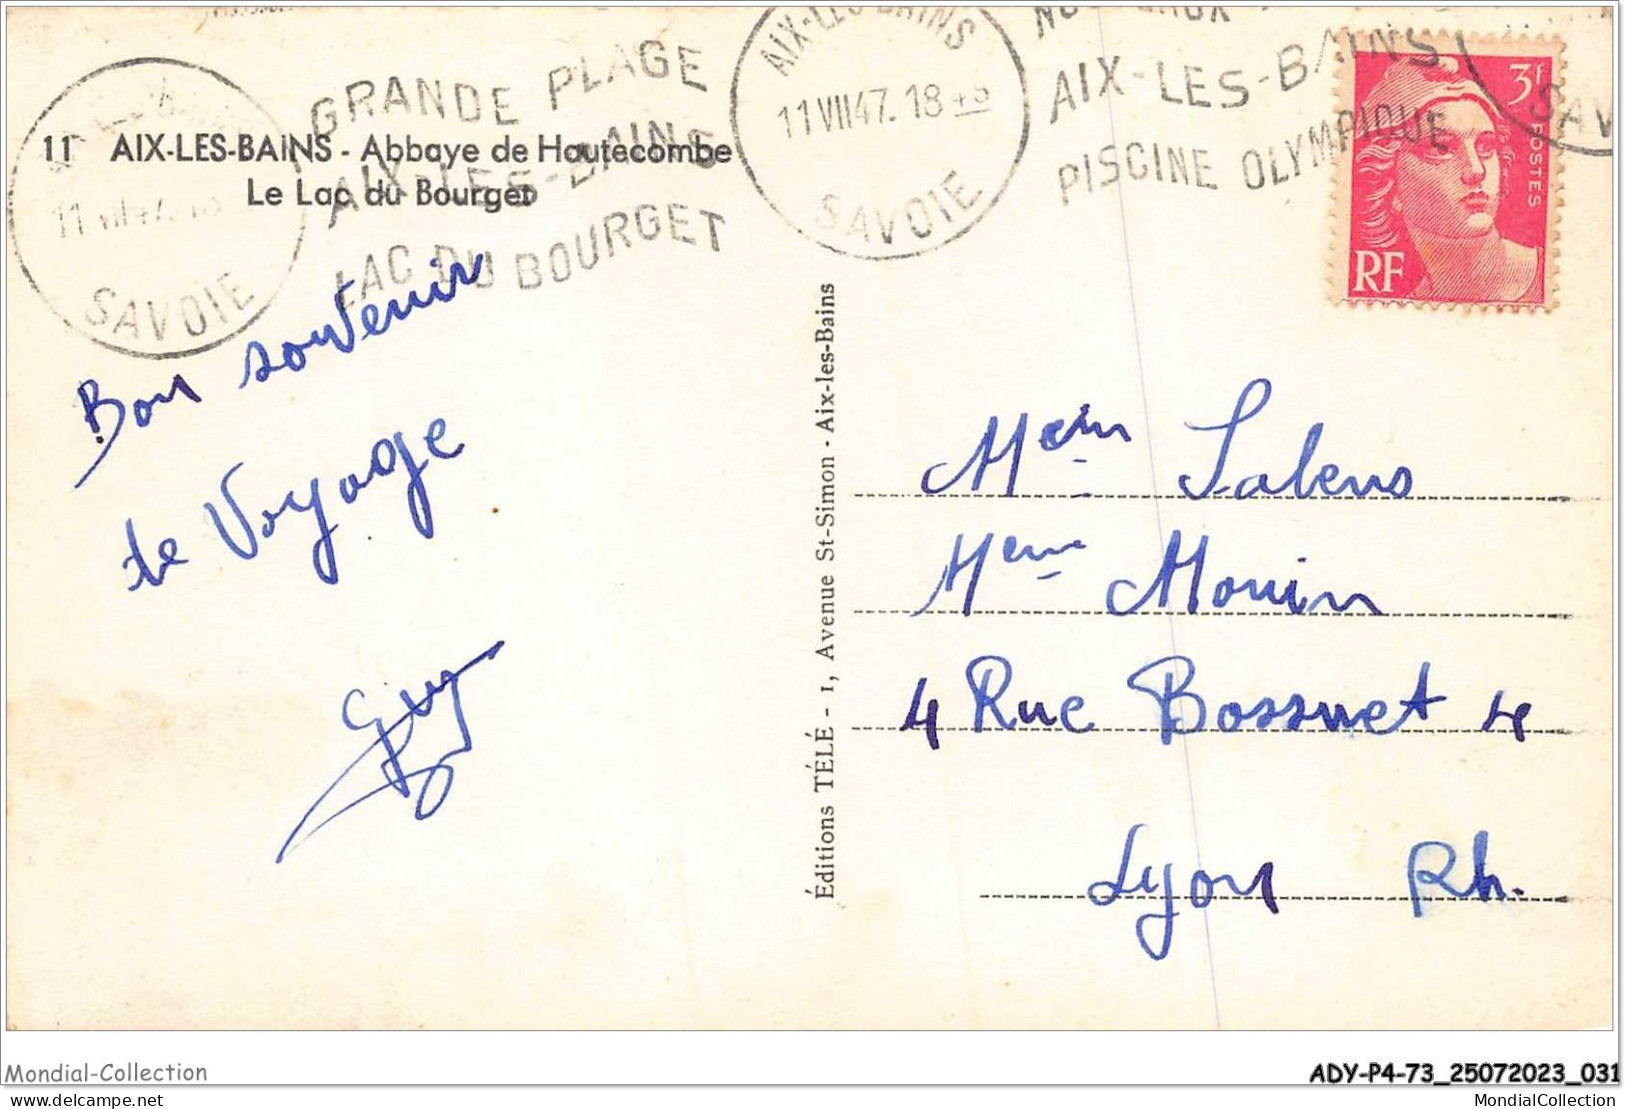 GRANDE PLAGE
AIX-LES-BAINS
LAC DU BOURGET
SAVOIE
11 AIX-LES-BAINS - Abbaye de Hautecombe
Le Lac du Bourget
AIX-LES-BAINS
11 VII 47. 18
SAVOIE
AIX-LES-BAINS
PISCINE OLYMPIQUE
3f
POSTES
RF
Bon souvenir
de Voyage
Guy
Éditions TÉLÉ - 1, Avenue St-Simon - Aix-les-Bains
Salens
Mme Mouin
4 Rue Bossuet 4
Lyon Rh.
Mondial-Collection
ADY-P4-73_25072023_031
delcampe.net
MondialCollection